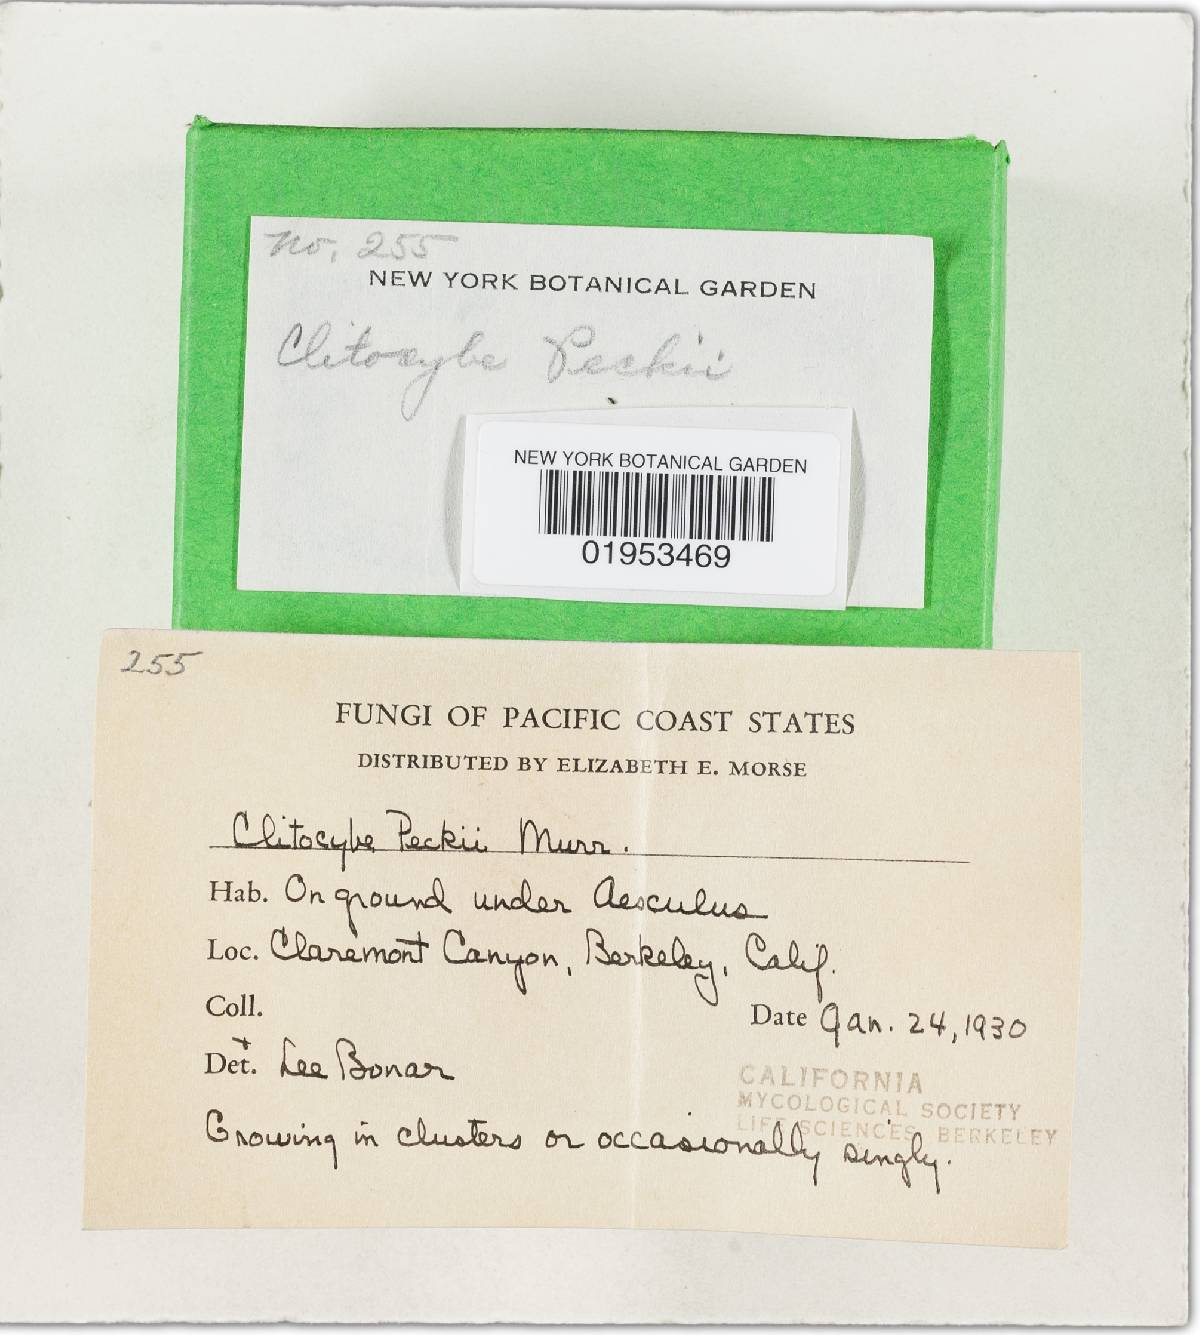 No. 255
NEW YORK BOTANICAL GARDEN
Clitocybe Peckii
NEW YORK BOTANICAL GARDEN
01953469
255
FUNGI OF PACIFIC COAST STATES
DISTRIBUTED BY ELIZABETH E. MORSE
Clitocybe Peckii Murr.
Hab. On ground under Aesculus
Loc. Claremont Canyon, Berkeley, Calif.
Coll.
Date Jan. 24, 1930
+
Det. Lee Bonar
CALIFORNIA
MYCOLOGICAL SOCIETY
LIFE SCIENCES, BERKELEY
Growing in clusters or occasionally singly.